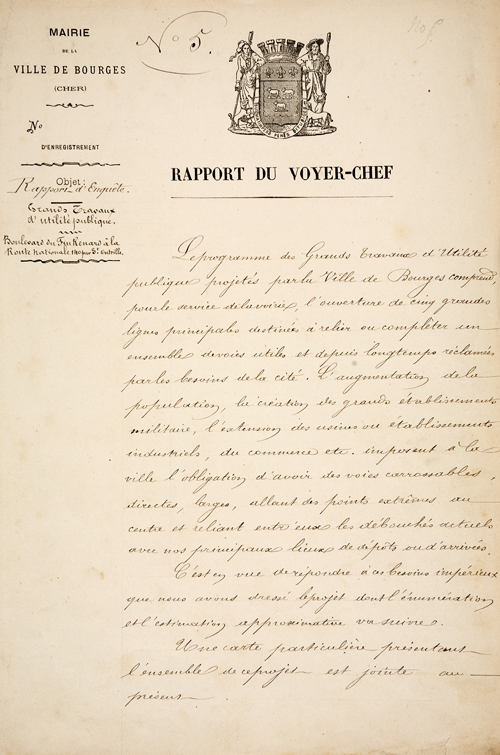 MAIRIE
DE LA
VILLE DE BOURGES
(CHER)
No
D'ENREGISTREMENT
Objet:
Rapport d'Enquête.
Grands Travaux
d'utilité publique.
Boulevard du
Route Nationale
No 5.
RAPPORT DU VOYER-CHEF
Le programme des Grands Travaux d'Utilité
publique projetés par la Ville de Bourges comprend,
pour le service de la voirie, l'ouverture de cinq grandes
lignes principales destinées à relier ou compléter un
ensemble de voies utiles et depuis longtemps réclamées
par les besoins de la cité. L'augmentation de la
population, la création des grands établissements
militaire, l'extension des usines ou établissements
industriels, du commerce etc. imposent à la
ville l'obligation d'avoir des voies carrossables,
directes, larges, allant des points extrêmes au
centre et reliant entr'eux les débouchés actuels
avec nos principaux lieux de dépôts ou d'arrivées.
C'est en vue de répondre à ces besoins impérieux
que nous avons dressé le projet dont l'énumération
et l'estimation approximative va suivre.
Une carte particulière présentant
l'ensemble de ce projet est jointe au
présent